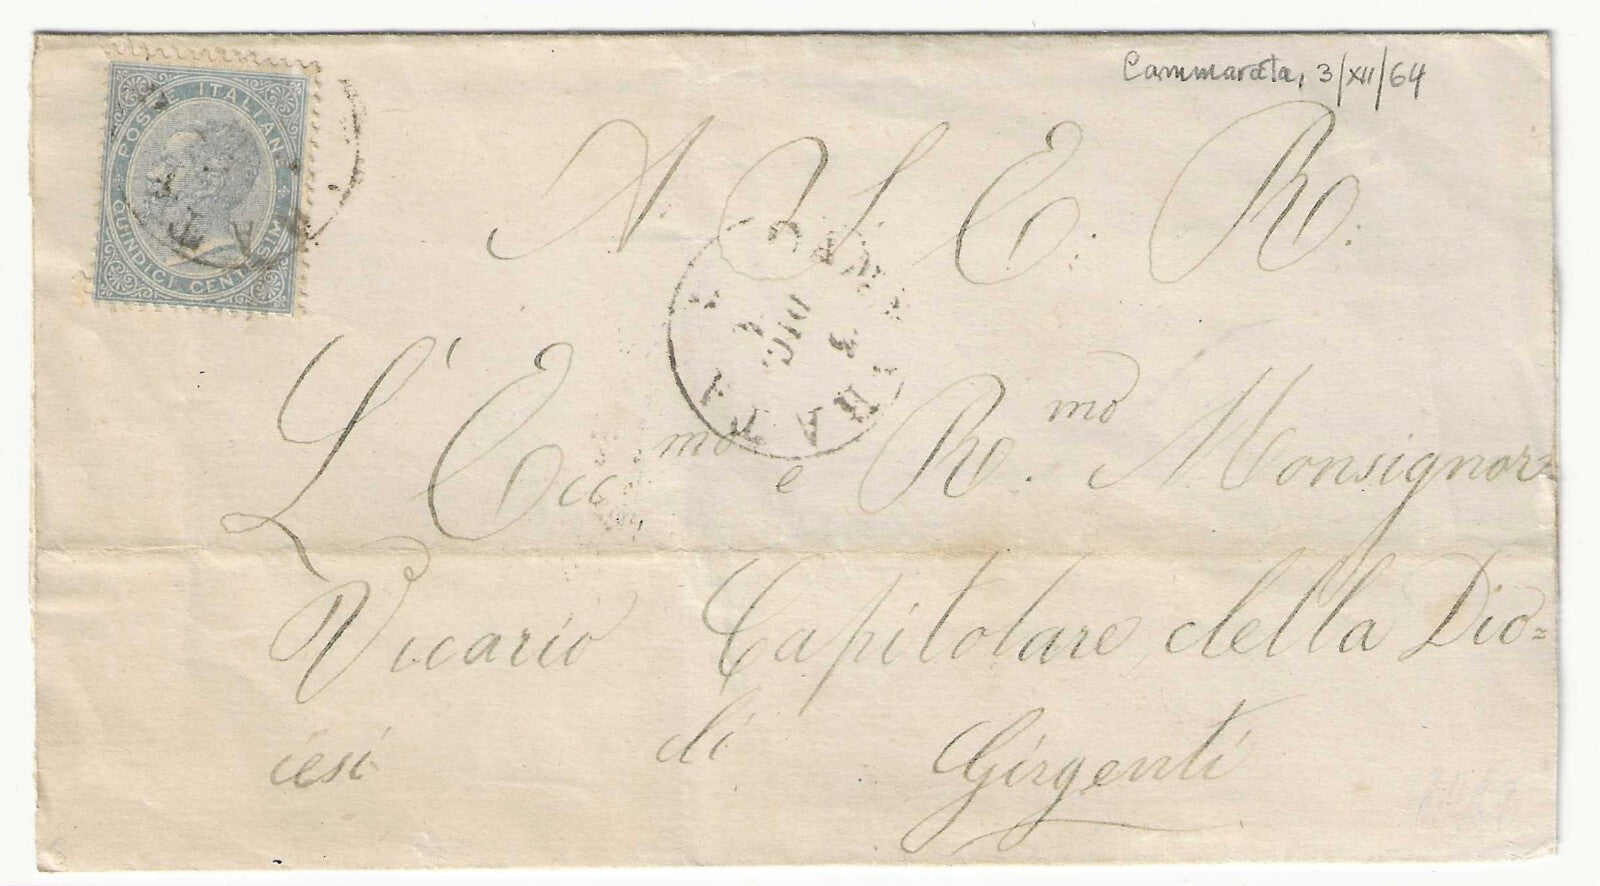 Cammarata, 3/XII/64
POSTE ITALIANE
QUINDICI CENTESIMI
A. S. E. R.
CAMMARATA
3
DIC
L'Ecc.mo e R.mo Monsignor=
Vicario Capitolare della Dio=
cesi di Girgenti